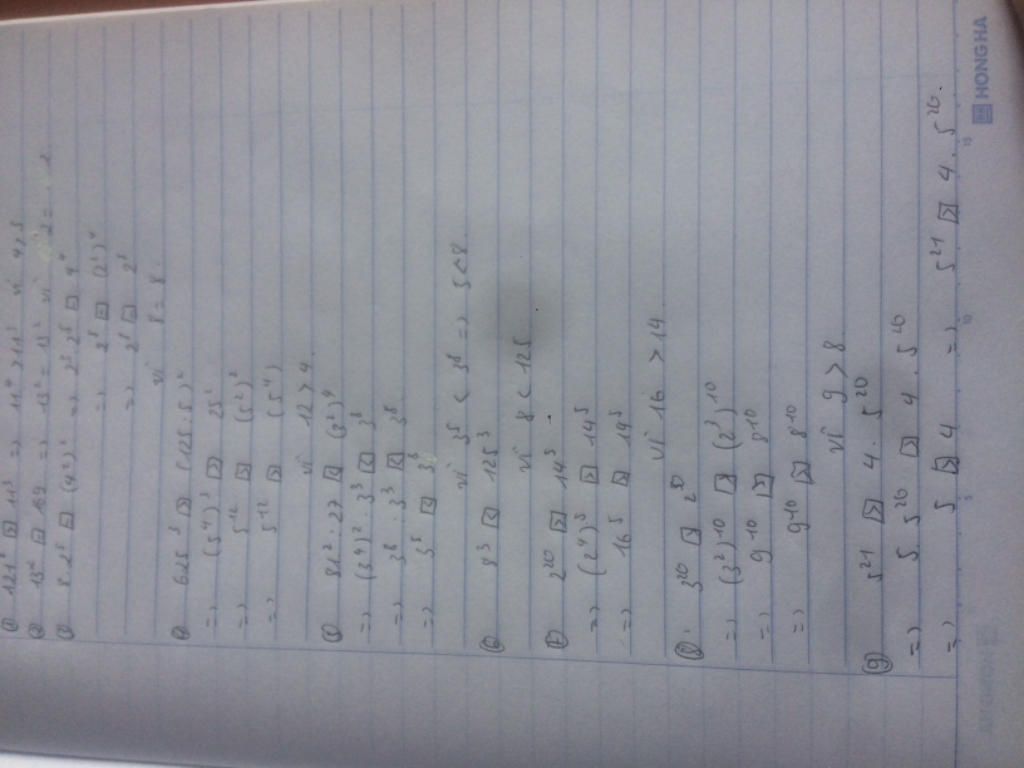 121² > 11³ => 11⁴ > 11³ vì 4 > 3
13² = 169 => 13² = 13² vì 2 = 2
8·2⁵ = (4²)² => 2³·2⁵ = 4⁴
=> 2⁸ = (2²)⁴
=> 2⁸ = 2⁸
vì 8 = 8
625³ > (125·5)²
=> (5⁴)³ > 25²
=> 5¹² > (5²)²
=> 5¹² > (5⁴)
vì 12 > 4
81²·27 < (3²)⁴
=> (3⁴)²·3³ < 3⁸
=> 3⁸·3³ < 3⁸
=> 3⁵ < 3⁸
vì 3⁵ < 3⁸ => 5 < 8
8³ < 125³
vì 8 < 125
2²⁰ > 14⁵
=> (2⁴)⁵ > 14⁵
=> 16⁵ > 14⁵
vì 16 > 14
=> (3²)¹⁰ > (2³)¹⁰
=> 9¹⁰ > 8¹⁰
=> 9¹⁰ > 8¹⁰
vì 9 > 8
g 5²¹ > 4·5²⁰
=> 5·5²⁰ > 4·5²⁰
=> 5 > 4 => 5²¹ > 4·5²⁰.
HONG HA